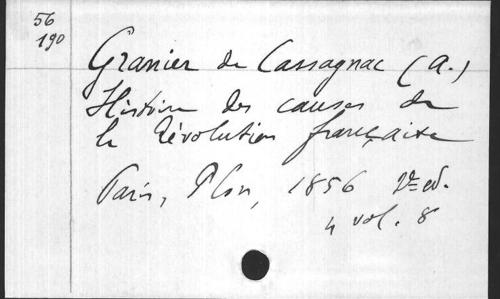 56
190
Granier de Cassagnac (A.)
Histoire des causes de
la Révolution française
Paris, Plon, 1856 2e ed.
4 vol. 8°